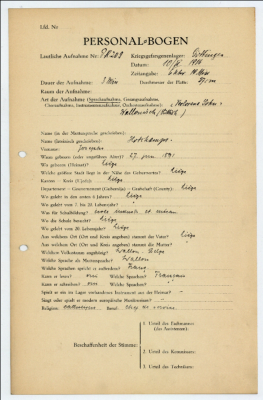 Lfd. Nr
PERSONAL-BOGEN
Lautliche Aufnahme Nr: PK 209 Kriegsgefangenenlager: Göttingen
Datum:
Dauer der Aufnahme: 2 Min Zeitangabe: 6 Uhr
Durchmesser der Platte: 27 cm
Raum der Aufnahme:
Art der Aufnahme (Sprachaufnahme, Gesangsaufnahme,
Choraufnahme, Instrumentenaufnahme, Orchesteraufnahme):
Wallonisch (Lüttich)
Name (in der Muttersprache geschrieben):
Name (lateinisch geschrieben):
Vorname: Joseph
Wann geboren (oder ungefähres Alter)? 27 1891
Wo geboren (Heimat)? Liége
Welche größere Stadt liegt in der Nähe des Geburtsortes? Liége
Kanton — Kreis (Ujedz): Liége
Departement — Gouvernement (Gubernija) — Grafschaft (County): Liége
Wo gelebt in den ersten 6 Jahren? Liége
Wo gelebt vom 7. bis 20. Lebensjahr?
Was für Schulbildung? école
Wo die Schule besucht? Liége
Wo gelebt vom 20. Lebensjahr? Liége
Aus welchem Ort (Ort und Kreis angeben) stammt der Vater? Liége
Aus welchem Ort (Ort und Kreis angeben) stammt die Mutter?
Welchem Volksstamm angehörig? Wallon Belge
Welche Sprache als Muttersprache? Wallon
Welche Sprachen spricht er außerdem? Franç.
Kann er lesen? oui Welche Sprachen? Français
Kann er schreiben? oui Welche Sprachen?
Spielt er ein im Lager vorhandenes Instrument aus der Heimat? —
Singt oder spielt er modern europäische Musikweisen? —
Religion: catholique Beruf:
Beschaffenheit der Stimme:
1. Urteil des Fachmannes:
(des Assistenten)
2. Urteil des Kommissars:
3. Urteil des Assistenten: